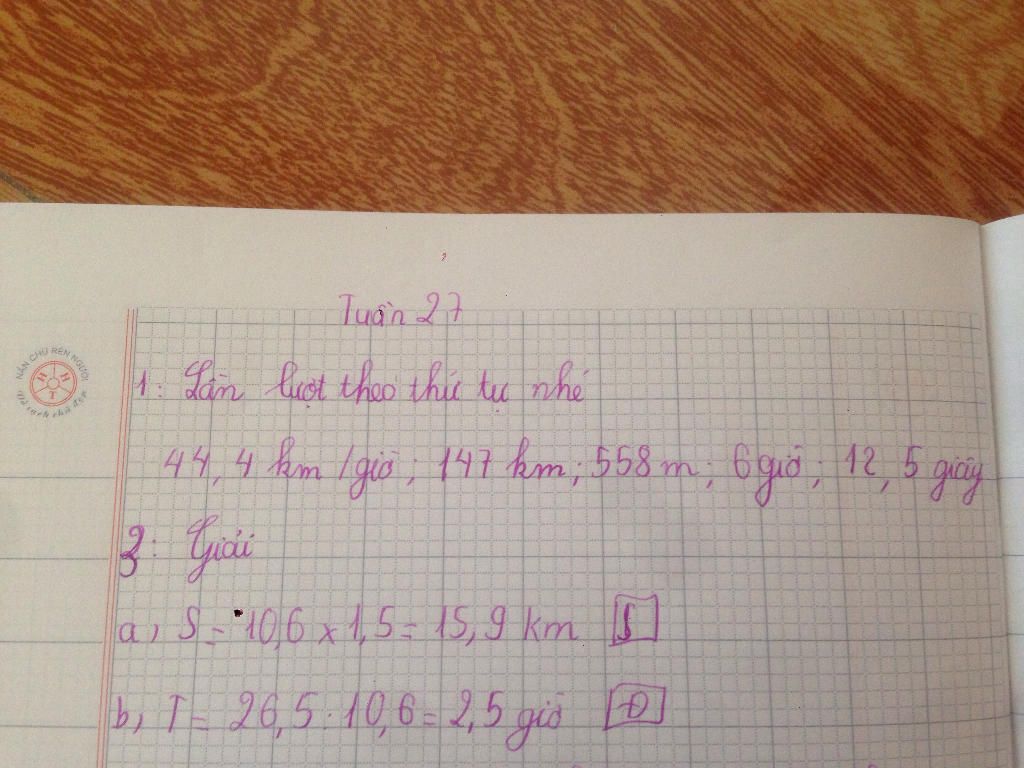 Tuần 27
NẮN CHỮ RÈN NGƯỜI
H H T
Vở sạch chữ đẹp
1: Lần lượt theo thứ tự nhé
44,4 km/giờ; 147 km; 558 m; 6 giờ; 12,5 giây
3: Giải
a, S = 10,6 x 1,5 = 15,9 km S
b, T = 26,5 : 10,6 = 2,5 giờ Đ